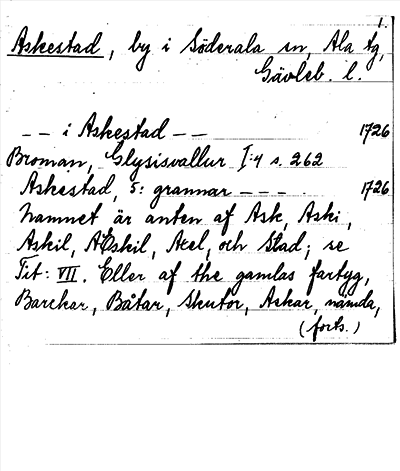 1.
Askestad, by i Söderala sn, Ala tg,
Gävleb. l.
-- i Askestad -- 1726
Broman, Glysisvallur I:4 s. 262
Askestad, 5: grannar --- 1726
Namnet är anten af Ask, Aski,
Askil, AEskil, Axel, och Stad; se
Tit: VII. Eller af the gamlas fartyg,
Barckar, Båtar, Skutor, Askar, nämda,
(forts.)